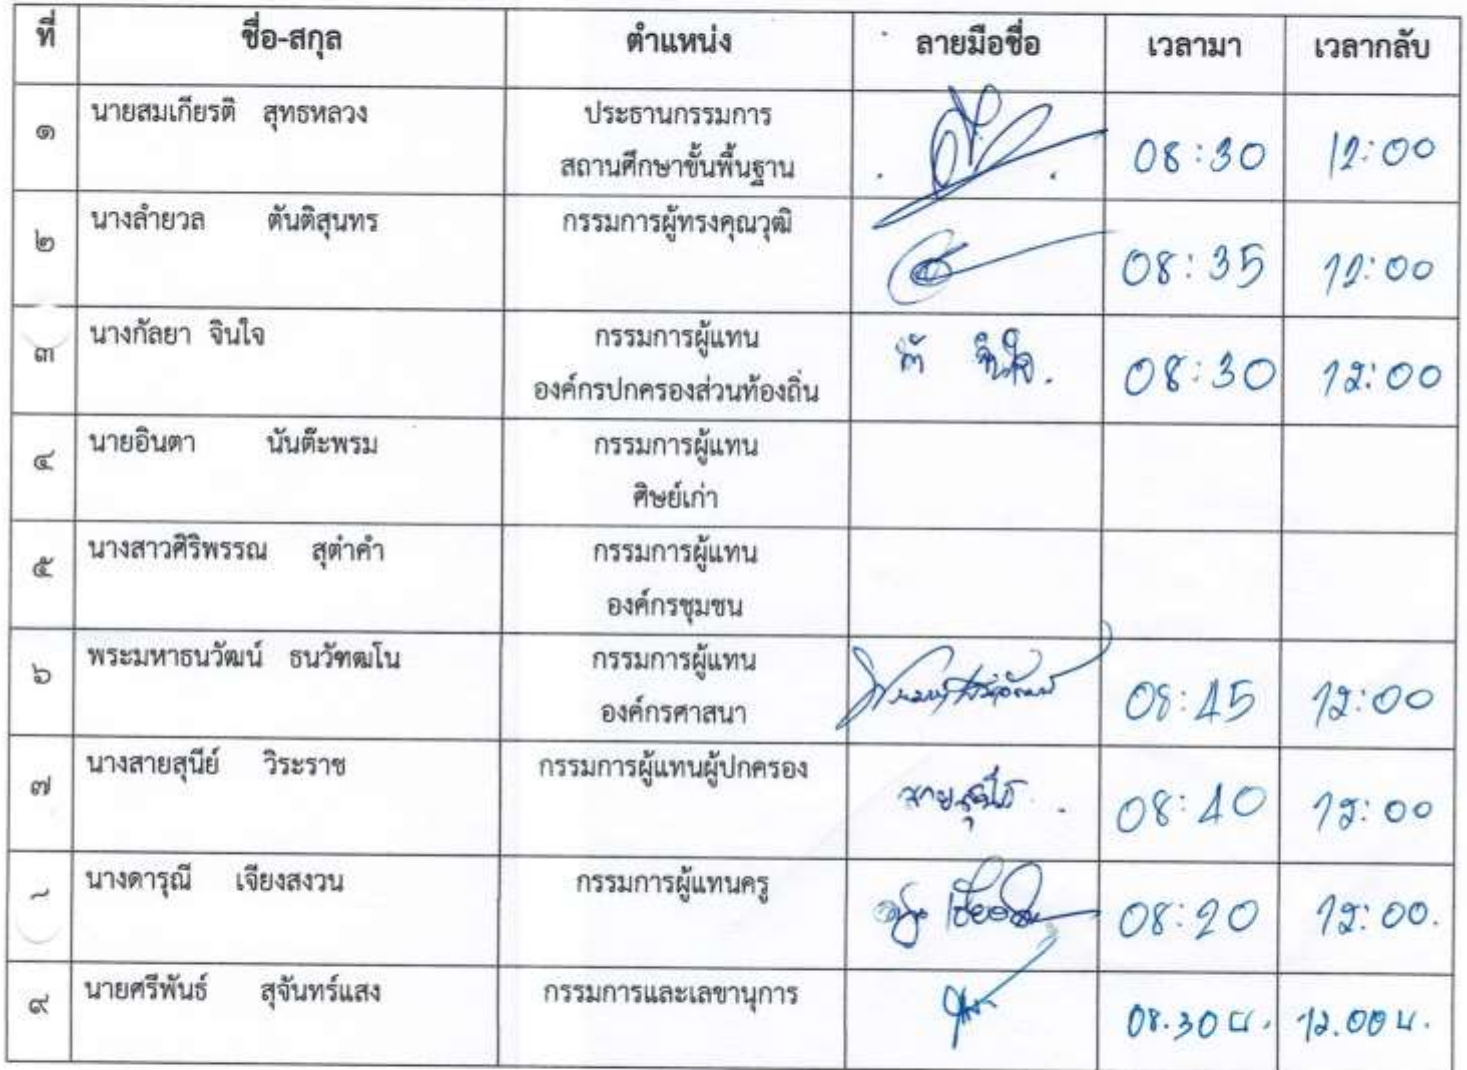 ที่ ชื่อ-สกุล ตำแหน่ง ลายมือชื่อ เวลามา เวลากลับ
๑ นายสมเกียรติ สุทธหลวง ประธานกรรมการ 08:30 12:00
สถานศึกษาขั้นพื้นฐาน
๒ นางลำยวล ตันติสุนทร กรรมการผู้ทรงคุณวุฒิ 08:35 12:00
๓ นางกัลยา จินใจ กรรมการผู้แทน จินใจ. 08:30 12:00
องค์กรปกครองส่วนท้องถิ่น
๔ นายอินตา นันต๊ะพรม กรรมการผู้แทน
ศิษย์เก่า
๕ นางสาวศิริพรรณ สุต๋าคำ กรรมการผู้แทน
องค์กรชุมชน
๖ พระมหาธนวัฒน์ ธนวัฑฒโน กรรมการผู้แทน 08:45 12:00
องค์กรศาสนา
๗ นางสายสุนีย์ วิระราช กรรมการผู้แทนผู้ปกครอง สายสุนีย์ 08:40 12:00
นางดารุณี เจียงสงวน กรรมการผู้แทนครู 08:20 12:00.
๙ นายศรีพันธ์ สุจันทร์แสง กรรมการและเลขานุการ 08.30 น. 12.00 น.